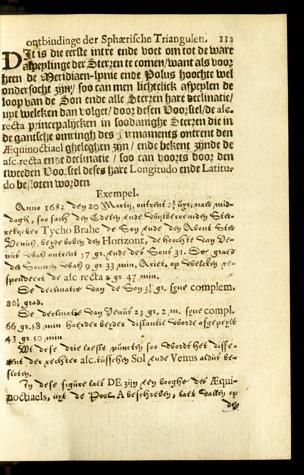 ontbindinge der Sphærische Triangulen. 112
DIt is die eerste intre ende voet om tot de ware
afpeylinge der Sterren te comen/want als voor
heen de Meridiaen-lynie ende Polus hoochte wel
ondersocht zijn/ soo can men lichtelick afpeylen de
loop van de Son ende alle Sterren hare declinatie/
uyt welcken dan volget/door desen Voorstel/de asc.
recta principalijcken in soodanighe Sterren die in
de gantsche omringh des Firmaments ontrent den
Æquinoctiael gheleghen zijn/ ende bekent zijnde de
asc. recta ende declinatie / soo can voorts door den
tweeden Voorstel deses hare Longitudo ende Latitu-
do besloten worden
Exempel.
Anno 1682 den 20 Martij, ontrent uyr, naer mid-
dagh, soo sach den Edelen ende
Tycho Brahe de Son ende den Avont Ster
Venus, beyde boven den Horizont, de hoochte van Ve-
nus was ontrent 17 gr. ende der Son 31. De graed
der Sonnen was 9 gr. 33 min. Ariet, op welcken
de asc recta 8 gr 47 min.
De declinatie van de Son gr. syne complem.
gr.
De declinatie van Venus 23 gr, 2 m. syne compl.
66 gr. 58 min haerder beyder distantie worde afgepeylt
43 gr 50 min.
Wt dese drie laetste puncten soo wordt het diffe-
rent der rechter asc. tusschen Sol ende Venus aldus be-
sloten.
In dese figure laet DE zijn een booghe der Æqui-
noctiaels, uyt de Pool A beschreven, laet vallen op
den